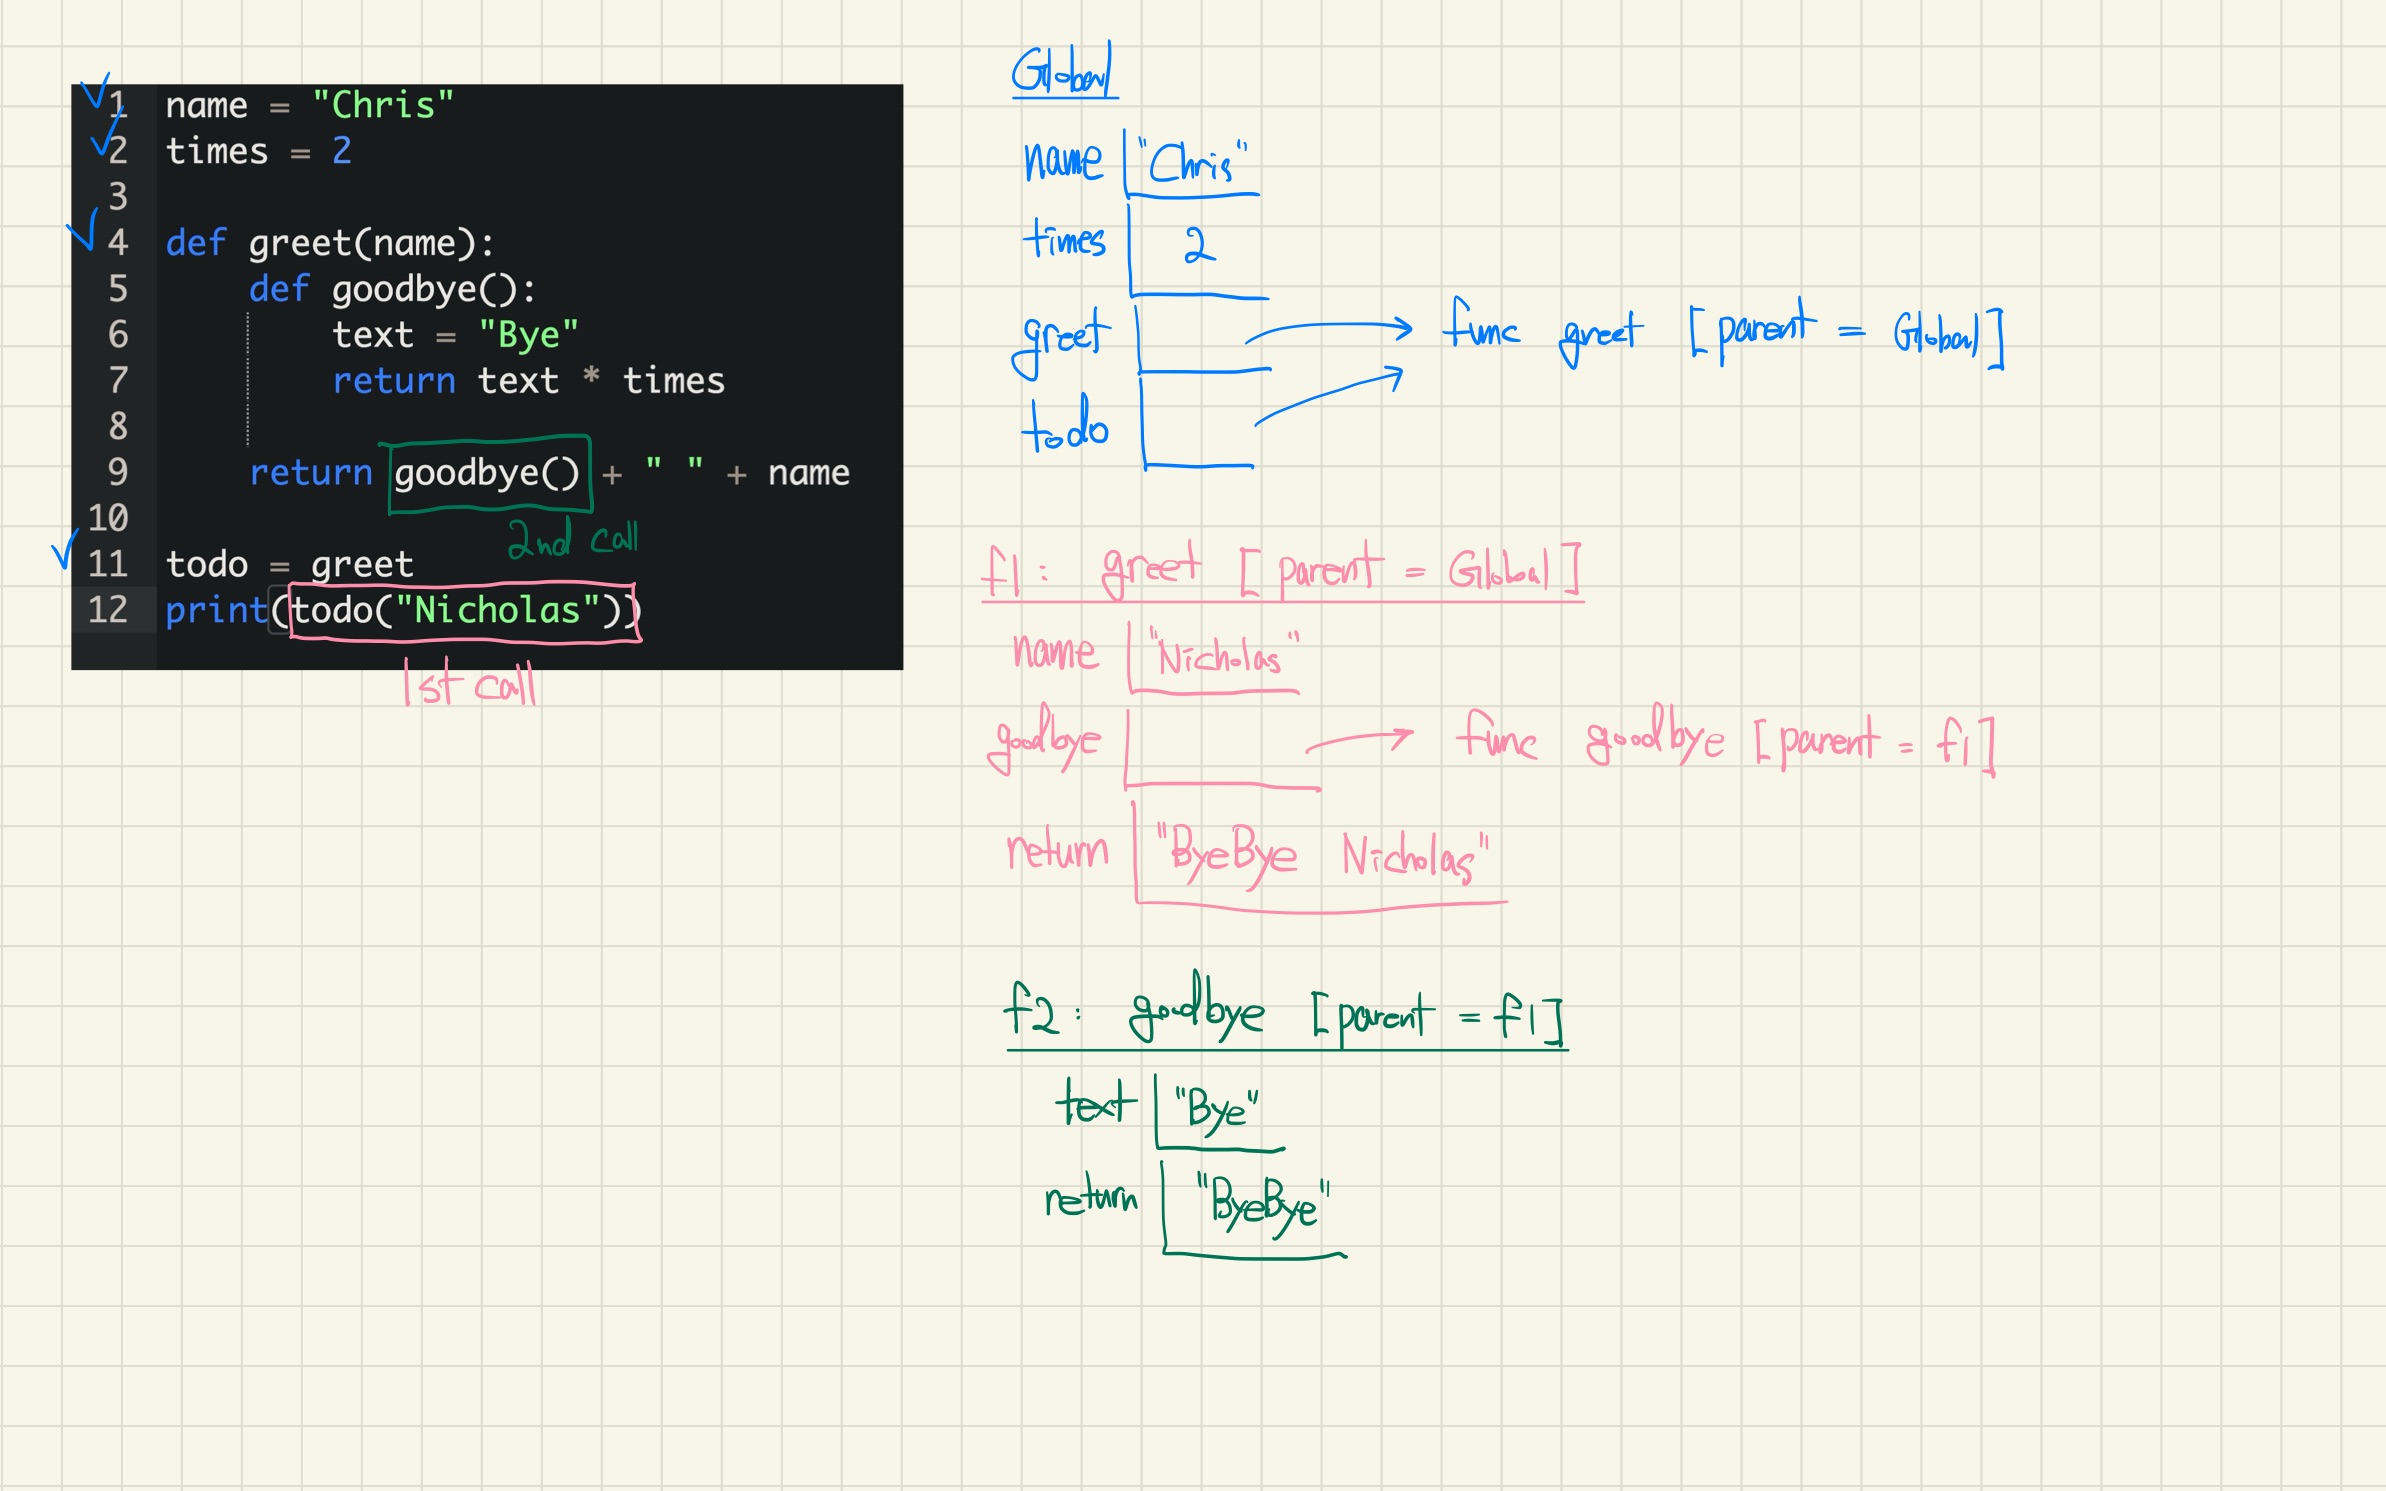 1 name = "Chris"
2 times = 2
3
4 def greet(name):
5     def goodbye():
6         text = "Bye"
7         return text * times
8
9     return goodbye() + " " + name
10
2nd call
11 todo = greet
12 print(todo("Nicholas"))
1st call
Global
name "Chris"
times 2
greet func greet [parent = Global]
todo
f1: greet [parent = Global]
name "Nicholas"
goodbye func goodbye [parent = f1]
return "ByeBye Nicholas"
f2: goodbye [parent = f1]
text "Bye"
return "ByeBye"